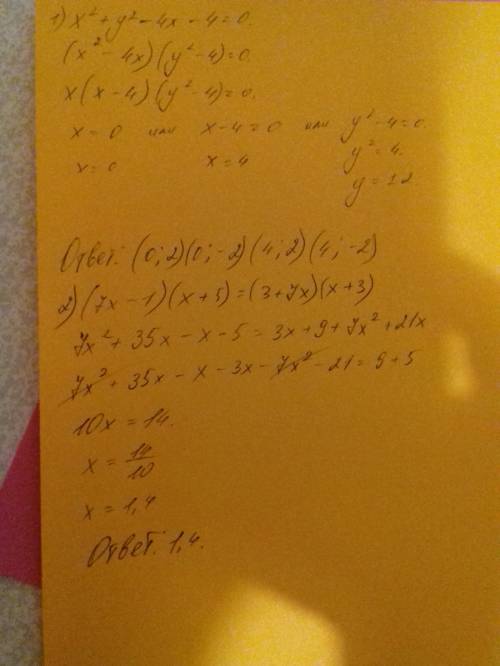 1) x² + y² - 4x - 4 = 0.
(x² - 4x)(y² - 4) = 0.
x(x - 4)(y² - 4) = 0.
x = 0 или x - 4 = 0 или y² - 4 = 0.
x = 0 x = 4 y² = 4.
y = ±2
Ответ: (0; 2)(0; -2)(4; 2)(4; -2)
2) (7x - 1)(x + 5) = (3 + 7x)(x + 3)
7x² + 35x - x - 5 = 3x + 9 + 7x² + 21x
7x² + 35x - x - 3x - 7x² - 21 = 9 + 5
10x = 14.
x = 14/10
x = 1,4
Ответ: 1,4.